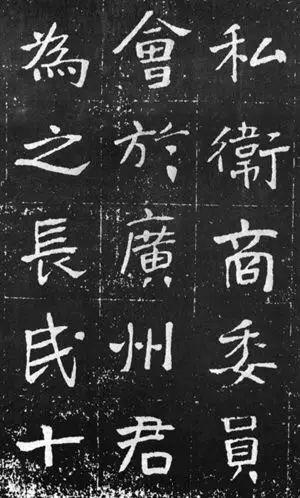 私衛商委員
會於廣州君
為之長民十